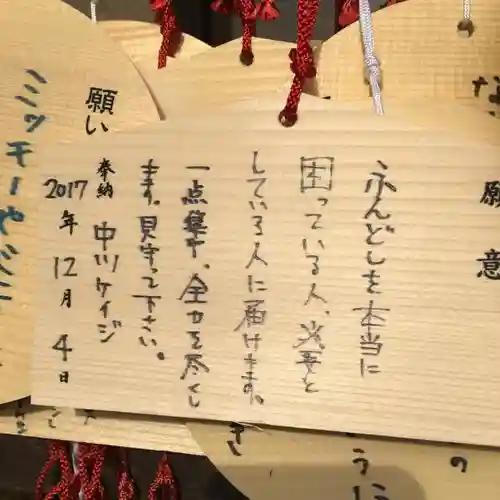 願意
ふんどしを本当に
困っている人、必要と
している人に届けます。
一点集中、全力を尽くし
ます。見守って下さい。
奉納 中川ケイジ
2017年12月4日
願い
ミッキーや